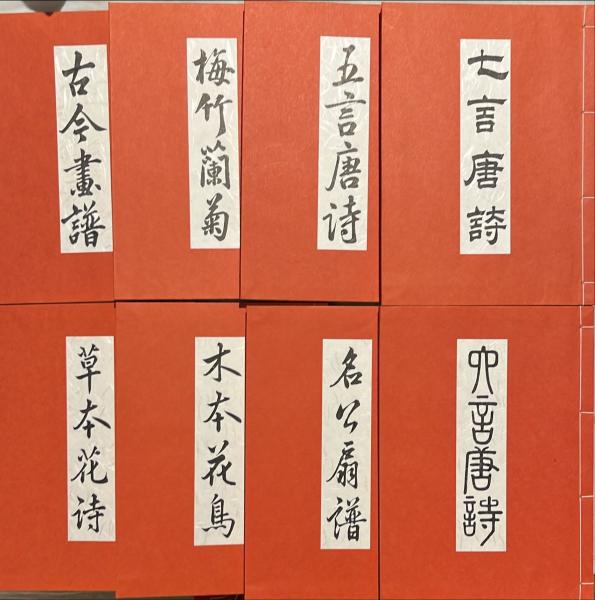 古今畫譜
梅竹蘭菊
五言唐诗
七言唐詩
草本花诗
木本花鳥
名公扇谱
六言唐詩